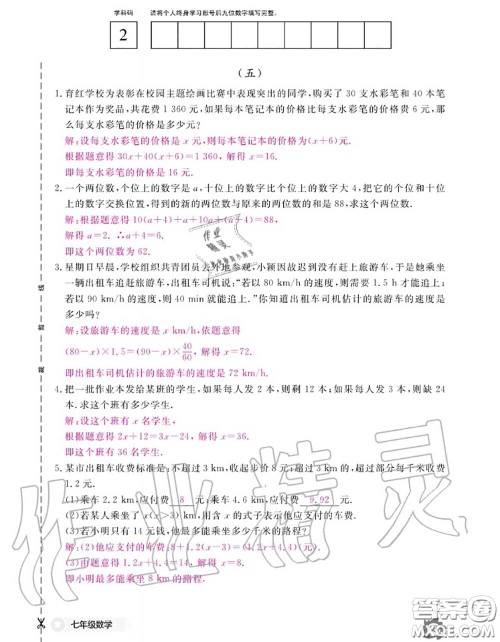 学科码 请将个人终身学习形号后九位数字填写完整。
2
（五）
1. 育红学校为表彰在校园主题绘画比赛中表现突出的同学,购买了 30 支水彩笔和 40 本笔
记本作为奖品,共花费 1 360 元,如果每本笔记本的价格比每支水彩笔的价格贵 6 元,那
么每支水彩笔的价格是多少元?
解:设每支水彩笔的价格是 x 元,则每本笔记本的价格为(x+6)元.
根据题意得 30x+40(x+6)=1 360,解得 x=16.
即每支水彩笔的价格是 16 元.
2. 一个两位数,个位上的数字是 a,十位上的数字比个位上的数字大 4,把它的个位和十位
上的数字交换位置,得到的新的两位数与原来的两位数的和是 88,求这个两位数.
解:根据题意得 10(a+4)+a+10a+(a+4)=88,
解得 a=2. ∴a+4=6.
即这个两位数为 62.
3. 星期日早晨,学校组织共青团员去外地参观,小颖因故迟到没有赶上旅游车,于是她乘坐
一辆出租车追赶旅游车,出租车司机说:“若以 80 km/h 的速度,则需要 1.5 h 才能追上;
若以 90 km/h 的速度,则 40 min 就能追上.”你知道出租车司机估计的旅游车的速度是
多少吗?
解:设旅游车的速度是 x km/h,依题意得
(80-x)×1.5=(90-x)×40/60,解得 x=72.
即出租车司机估计的旅游车的速度是 72 km/h.
4. 把一批作业本发给某班的学生,如果每人发 2 本,则剩 12 本;如果每人发 3 本,则缺 24
本.求这个班有多少学生.
解:设这个班有 x 名学生,
根据题意得 2x+12=3x-24,解得 x=36.
即这个班有 36 名学生.
5. 某市出租车收费标准是:不超过 3 km,收起步价 8 元;超过 3 km,超过部分每千米收费
1.2 元.
(1)乘车 2.2 km,应付费 8 元;乘车 4.6 km,应付费 9.92 元.
(2)若某人乘坐了 x(x>3) km,用含 x 的式子表示他应支付的车费.
(3)若小明只有 14 元钱,他最多能乘坐多少千米的路程?
解:(2)他应支付的车费:8+1.2(x-3)=(1.2x+4.4)(元).
即小明最多能乘坐 8 km 的路程.
七年级数学
作业精灵
答案圈